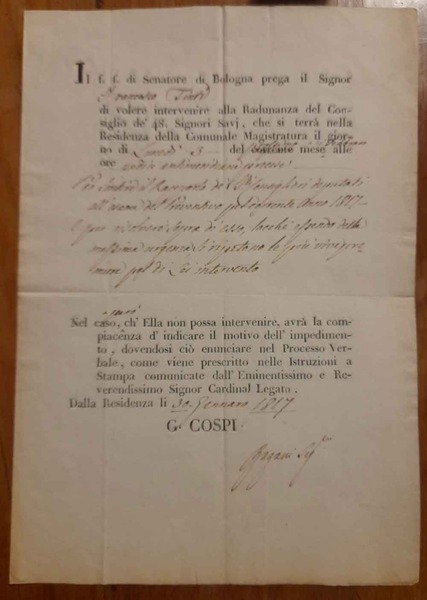 Il f. f. di Senatore di Bologna prega il Signor
Francesco
di volere intervenire alla Radunanza del Con-
siglio de' 48. Signori Savj, che si terrà nella
Residenza della Comunale Magistratura il gior-
no di Lunedì 3 del corrente mese alle
ore undici antimeridiane precise
Per sentire il Rapporto de' Consiglieri deputati
all' esame del Preventivo pel corrente Anno 1817
e per risolvere sopra di esso, locchè essendo della
massima urgenza si ripetono le più vive pre-
mure pel di Lei intervento
Nel caso, ch' Ella non possa intervenire, avrà la com-
piacenza d' indicare il motivo dell' impedimen-
to, dovendosi ciò enunciare nel Processo Ver-
bale, come viene prescritto nelle Istruzioni a
Stampa comunicate dall' Eminentissimo e Re-
verendissimo Signor Cardinal Legato.
Dalla Residenza li 30 Gennaro 1817
G. COSPI
Pagani